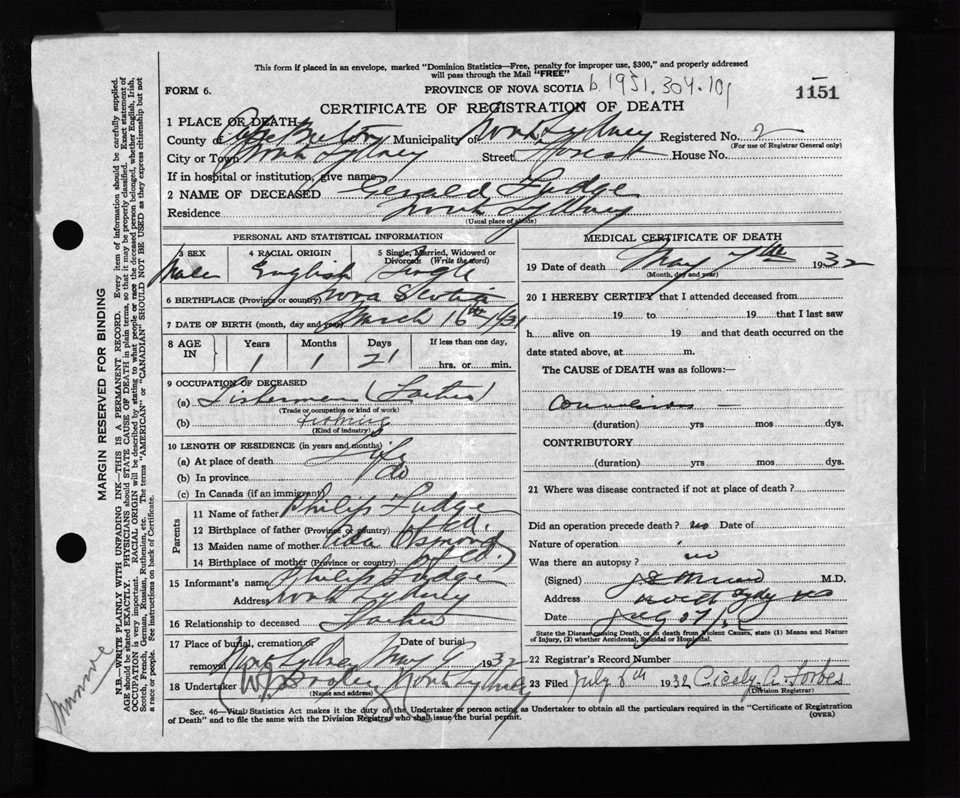 This form if placed in an envelope, marked "Dominion Statistics—Free, penalty for improper use, $300," and properly addressed
will pass through the Mail "FREE"
FORM 6. PROVINCE OF NOVA SCOTIA b.1931.304.101 1151
CERTIFICATE OF REGISTRATION OF DEATH
1 PLACE OF DEATH
County of Cape Breton Municipality of North Sydney Registered No. 2
(For use of Registrar General only)
City or Town North Sydney Street Forest House No.
If in hospital or institution, give name
2 NAME OF DECEASED Gerald Fudge
Residence North Sydney
(Usual place of abode)
PERSONAL AND STATISTICAL INFORMATION
3 SEX 4 RACIAL ORIGIN 5 Single, Married, Widowed or
Divorced (Write the word)
Male English Single
6 BIRTHPLACE (Province or country) Nova Scotia
7 DATE OF BIRTH (month, day and year) March 16th 1931
8 AGE IN Years Months Days If less than one day,
1 1 21 hrs. or min.
9 OCCUPATION OF DECEASED
(a) Fisherman (Father)
(Trade or occupation or kind of work)
(b) Fishing
(Kind of industry)
10 LENGTH OF RESIDENCE (in years and months)
(a) At place of death Life
(b) In province do
(c) In Canada (if an immigrant)
Parents
11 Name of father Philip Fudge
12 Birthplace of father (Province or country) Nfld.
13 Maiden name of mother Osmond
14 Birthplace of mother (Province or country) Nfld.
15 Informant's name Philip Fudge
Address North Sydney
16 Relationship to deceased Father
17 Place of burial, cremation Date of burial
removal North Sydney May 1932
18 Undertaker North Sydney
(Name and address)
MEDICAL CERTIFICATE OF DEATH
19 Date of death May 7th 1932
(Month, day and year)
20 I HEREBY CERTIFY that I attended deceased from
19 to 19 that I last saw
h alive on 19 and that death occurred on the
date stated above, at m.
The CAUSE of DEATH was as follows:—
Convulsions —
(duration) yrs mos dys.
CONTRIBUTORY
(duration) yrs mos dys.
21 Where was disease contracted if not at place of death?
Did an operation precede death? no Date of
Nature of operation
Was there an autopsy? no
(Signed) M.D.
Address North Sydney NS
Date July
State the Disease causing Death, or in death from Violent Causes, state (1) Means and Nature
of Injury, (2) whether Accidental, Suicidal or Homicidal.
22 Registrar's Record Number
23 Filed July 8th 1932 Cicely A. Forbes
(Division Registrar)
Sec. 46—Vital Statistics Act makes it the duty of the Undertaker or person acting as Undertaker to obtain all the particulars required in the "Certificate of Registration
of Death" and to file the same with the Division Registrar who shall issue the burial permit. (OVER)
MARGIN RESERVED FOR BINDING
N.B.—WRITE PLAINLY WITH UNFADING INK—THIS IS A PERMANENT RECORD. Every item of information should be carefully supplied.
AGE should be stated EXACTLY. PHYSICIANS should STATE CAUSE OF DEATH in plain terms, so that it may be properly classified. Exact statement of
OCCUPATION is very important. RACIAL ORIGIN will be described by stating to what people or race the deceased person belonged, whether English, Irish,
Scotch, French, German, Russian, Ruthenian, etc. The terms "AMERICAN" or "CANADIAN" SHOULD NOT BE USED as they express citizenship but not
a race or people. See instructions on back of Certificate.